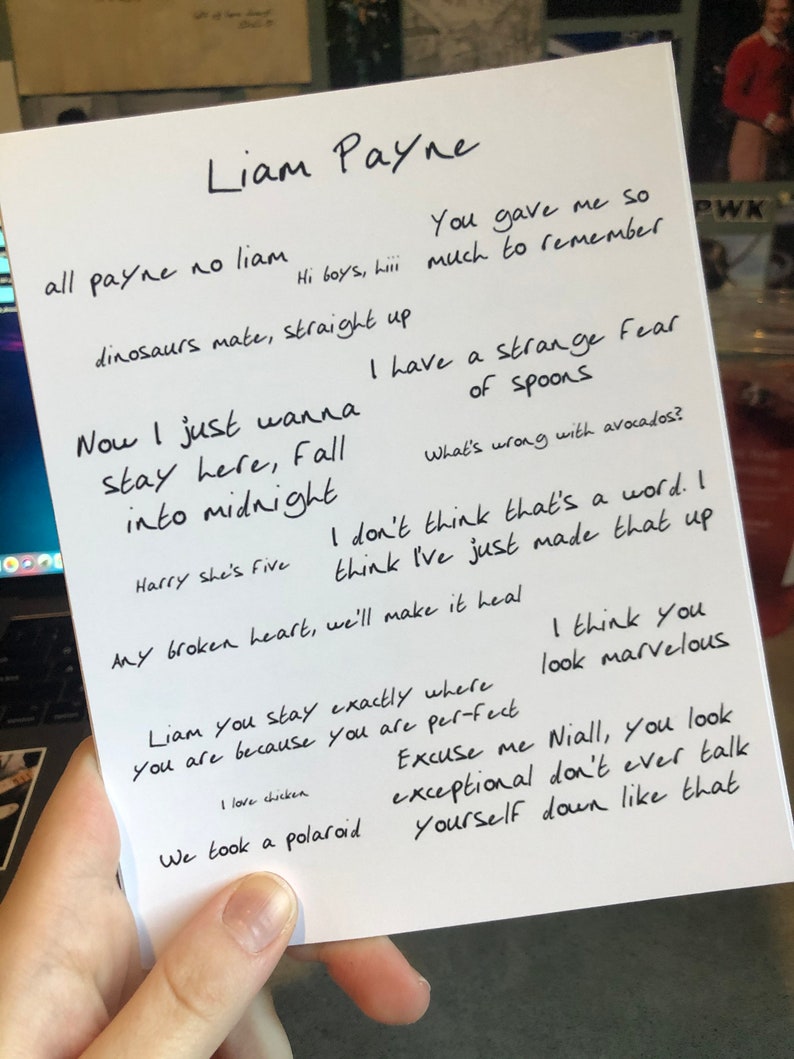 Liam Payne
all payne no liam
Hi boys, hiii
You gave me so
much to remember
dinosaurs mate, straight up
I have a strange fear
of spoons
Now I just wanna
stay here, fall
into midnight
What's wrong with avocados?
Harry she's five
I don't think that's a word. I
think I've just made that up
Any broken heart, we'll make it heal
I think you
look marvelous
Liam you stay exactly where
you are because you are per-fect
I love chicken
Excuse me Niall, you look
exceptional don't ever talk
yourself down like that
We took a polaroid
PWK